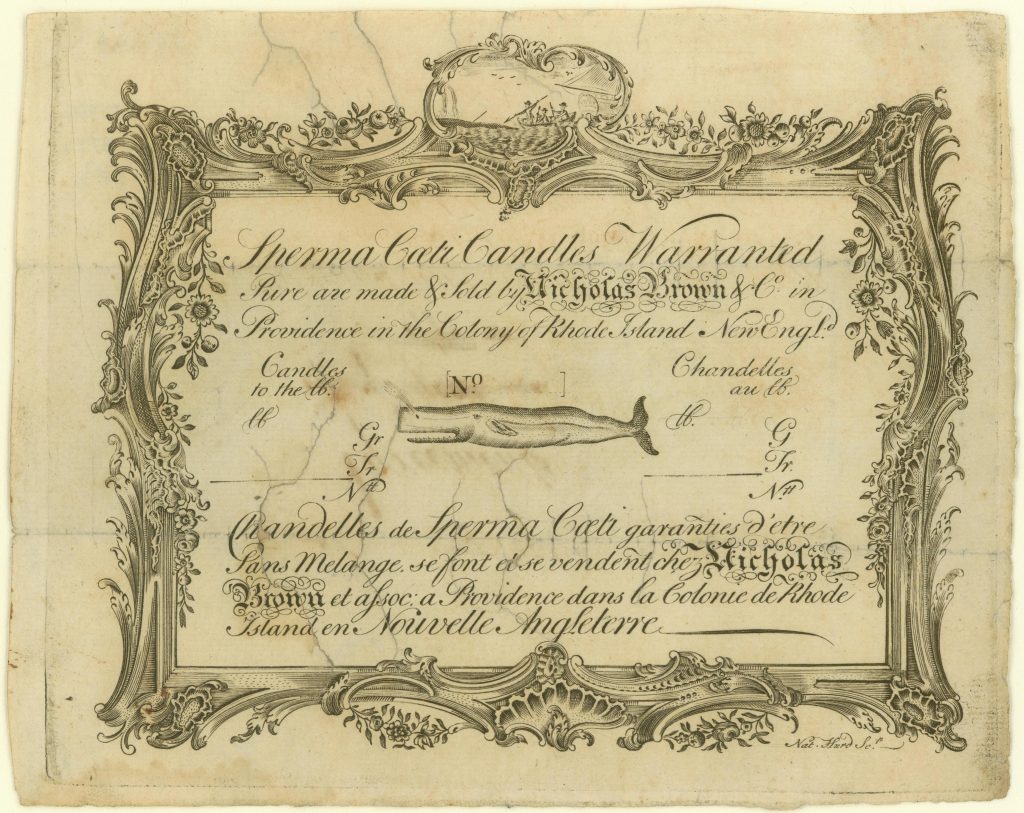 Sperma Cœti Candles Warranted
Pure are made & Sold by Nicholas Brown & Co. in
Providence in the Colony of Rhode Island New Engld.
Candles
to the lb.
lb
Gr
Tr.
Ntt
[No. ]
Chandelles
au lb.
lb.
G
Tr.
Ntt
Chandelles de Sperma Cœti garanties d'etre
Sans Melange. se font et se vendent chez Nicholas
Brown et assoc: a Providence dans la Colonie de Rhode
Island en Nouvelle Angleterre
Nat. Hurd Sct.